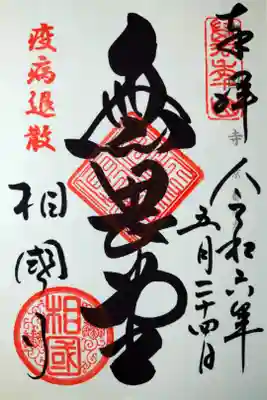 奉拝
令和六年
五月二十四日
無畏堂
疫病退散
相國寺
相國